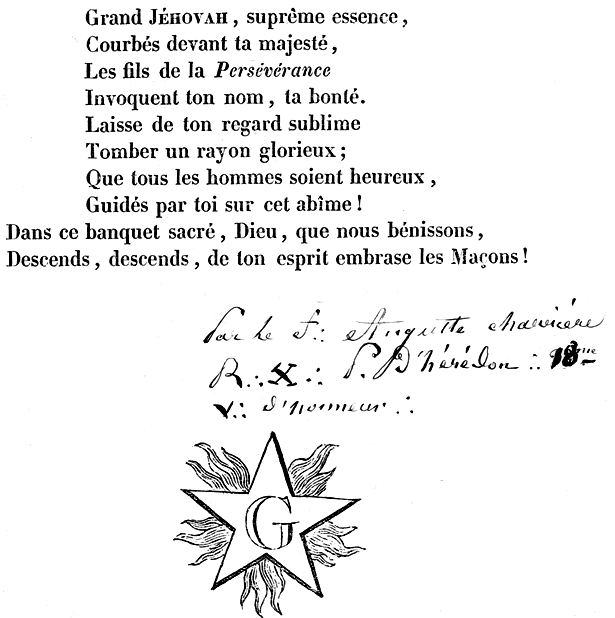 Grand JÉHOVAH, suprême essence,
Courbés devant ta majesté,
Les fils de la Persévérance
Invoquent ton nom, ta bonté.
Laisse de ton regard sublime
Tomber un rayon glorieux;
Que tous les hommes soient heureux,
Guidés par toi sur cet abîme!
Dans ce banquet sacré, Dieu, que nous bénissons,
Descends, descends, de ton esprit embrase les Maçons!
Par le F∴ Auguste
R∴ X∴ P. D'hérédon ∴ 18me
V∴ d'honneur ∴
G